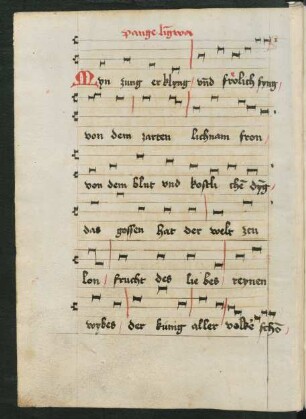 Pange lingwa
Myn zung erklyng vnd frölich syng
von dem zarten lichnam fron
von dem blut vnd kostli chen dyng
das gossen hat der welt zcu
lon frucht des lie bes reynen
wybes der kunig aller volke scho